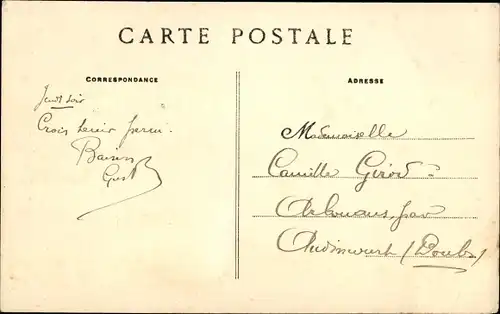 CARTE POSTALE
CORRESPONDANCE
Jeudi soir
Crois tenir permi.
Baisers
Gust
ADRESSE
Mademoiselle
Camille Girod
Arbouans, par
Audincourt (Doubs)